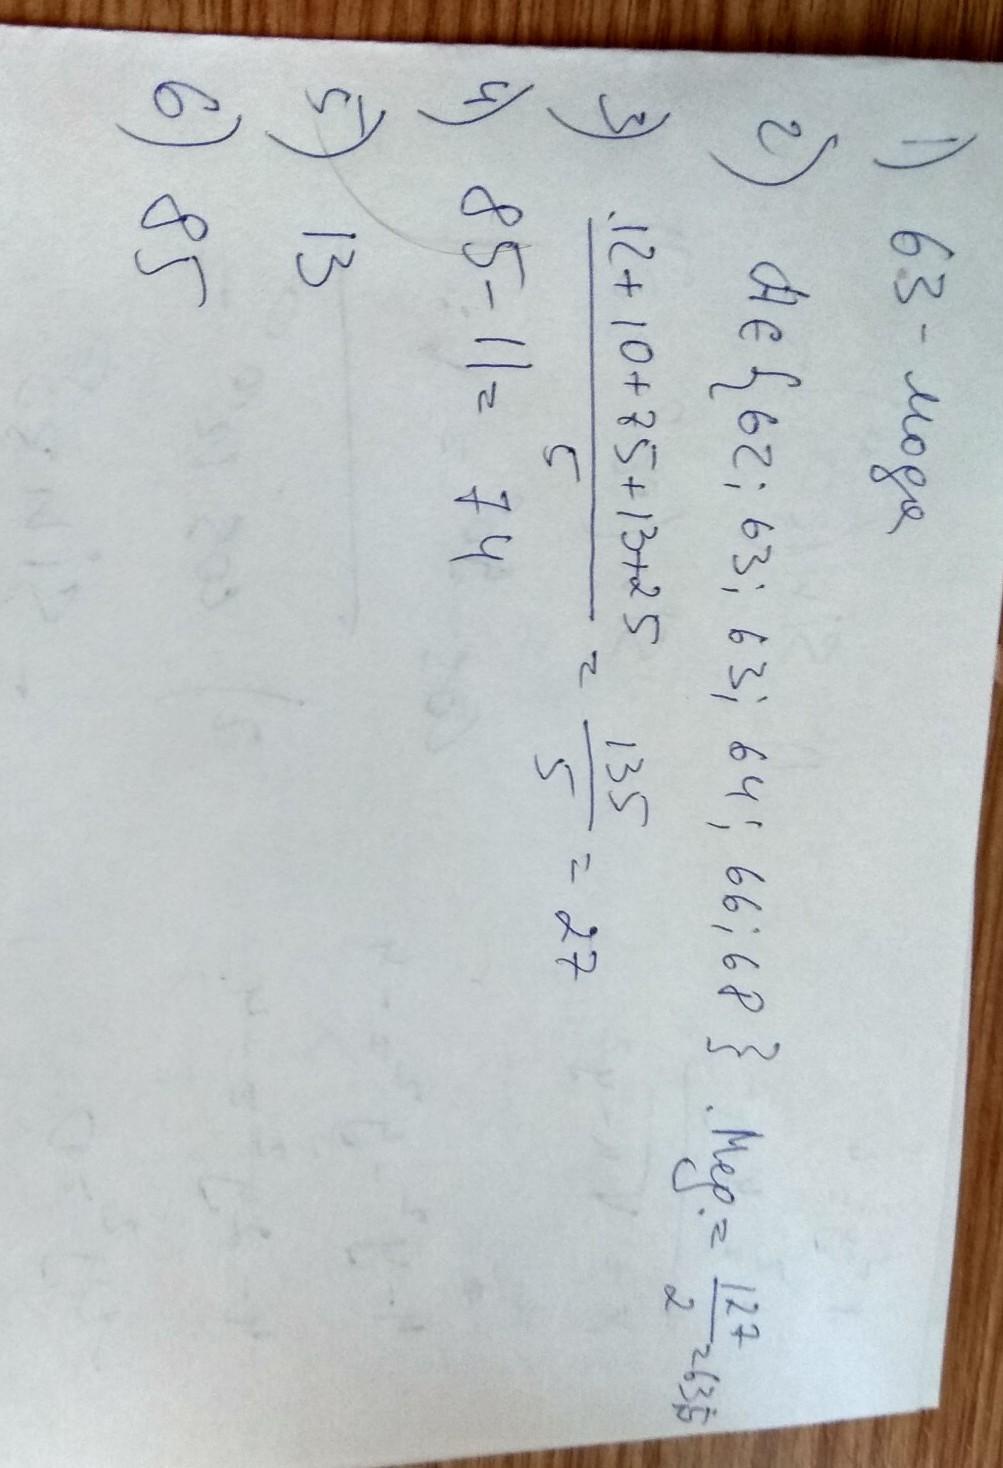 1) 63 - мода
2) Me {62; 63; 63; 64; 66; 68}. Мед. = 127/2 = 63,5
3) (12 + 10 + 75 + 13 + 25)/5 = 135/5 = 27
4) 85 - 11 = 74
5) 13
6) 85